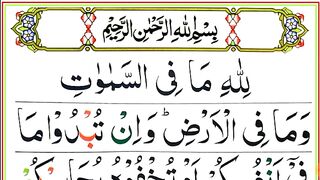 بِسْمِ اللهِ الرَّحْمٰنِ الرَّحِيْمِ
لِلّٰهِ مَا فِى السَّمٰوٰتِ
وَمَا فِى الْاَرْضِ ؕ وَاِنْ تُبْدُوْا مَا
فِىْۤ اَنْفُسِكُمْ اَوْ تُخْفُوْهُ يُحَاسِبْكُمْ